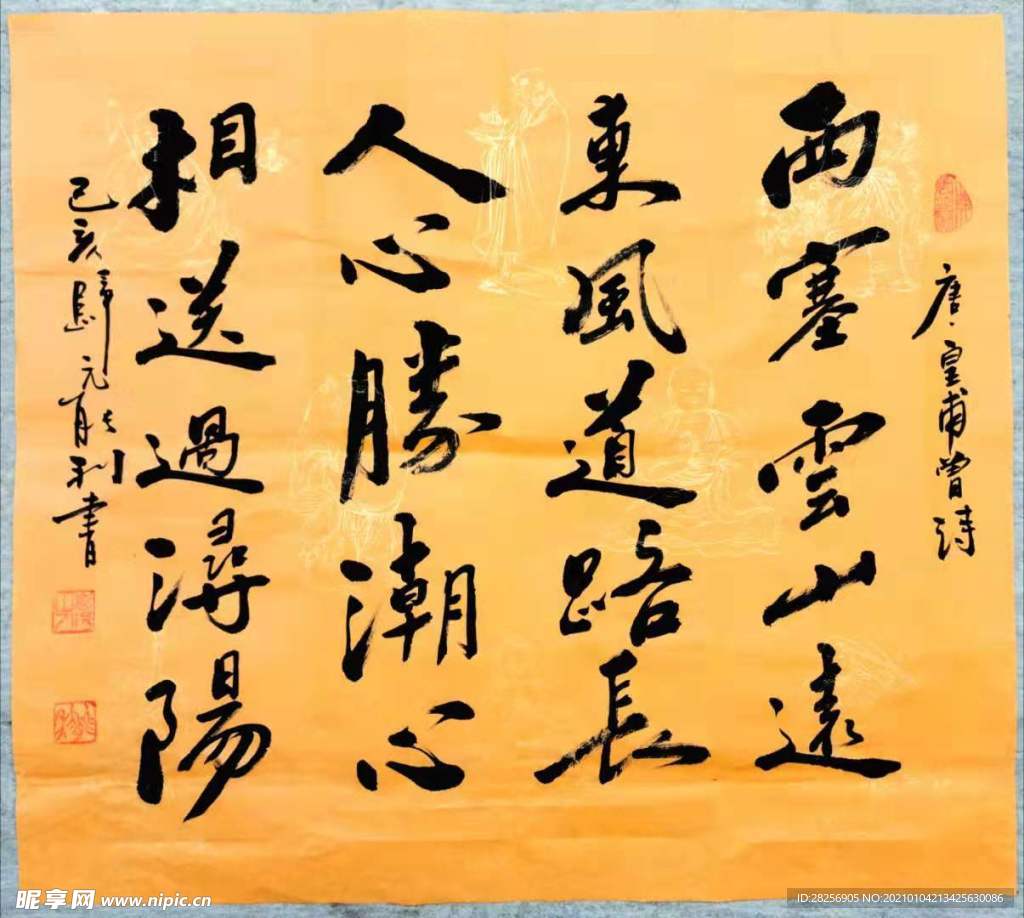 唐·皇甫曾诗
西塞雲山遠
東風道路長
人心勝潮心
相送過潯陽
己亥歸元利書
昵享网 www.nipic.cn
ID:28256905 NO:20210104213425630086